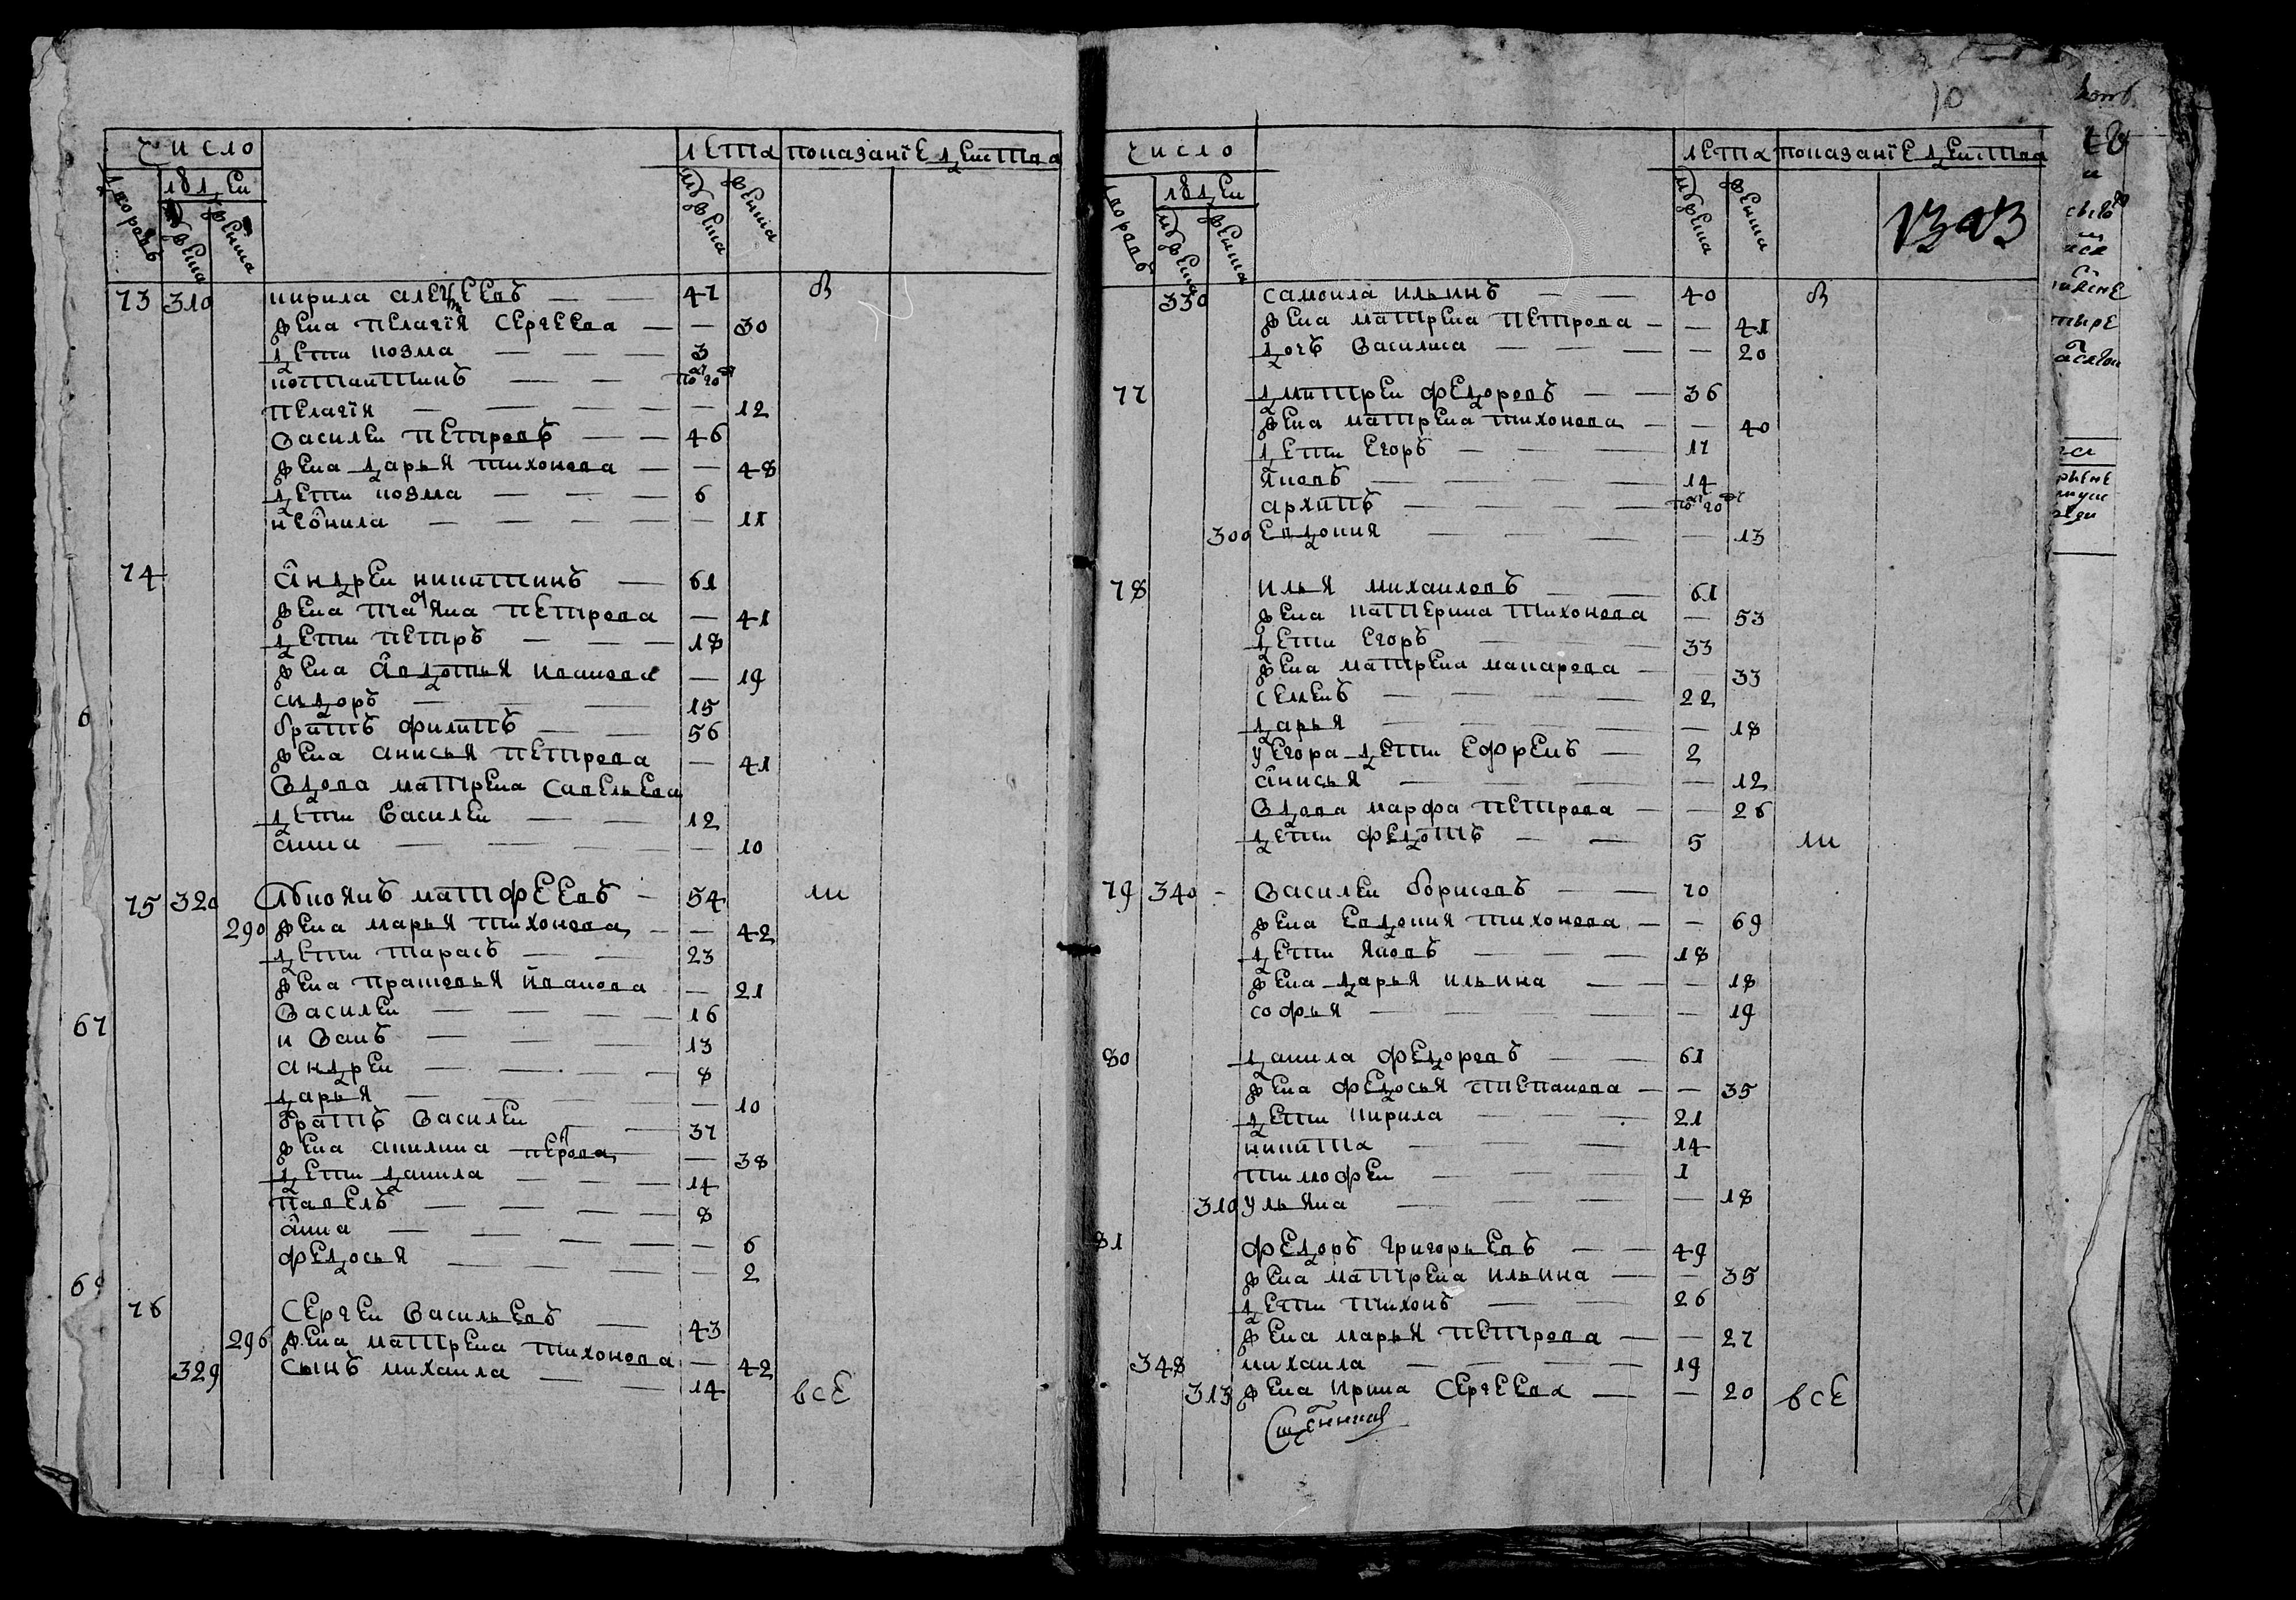 число
лета показанïе действа
дворовъ
людей
мужеска
женска
мужеска
женска
73 310 кирила алексеевъ — — 47 в
жена пелагïя сергеева — — 30
дети козма — — — 3
костантинъ — —
пелагïя — — — — — 12
василеи петровъ — — 46
жена дарья тихонова — — 48
дети козма — — — 6
неонила — — — — — 11
74 андреи никитинъ — 61
жена татьяна петрова — 41
дети петръ — — — 18
жена авдотья иванова — 19
сидоръ — — — 15
братъ филипъ — — 56
жена анисья петрова — 41
вдова матрена савельева
дети василеи — — 12
анна — — — — — 10
75 320 матфеевъ — 54 ли
290 жена марья тихонова — — 42
дети тарасъ — — 23
жена прасковья иванова — 21
василеи — — — — 16
иванъ — — — 13
андреи — — — — 8
дарья — — — — — 10
братъ василеи — — 37
жена акилина петрова — 38
дети данила — — — 14
павелъ — — — — 8
анна — — — — — 6
федосья — — — — 2
76 сергеи васильевъ — 43
296 жена матрена тихонова — 42
329 сынъ михаила — — 14
все
67
10
число
лета показанïе действа
дворовъ
людей
мужеска
женска
мужеска
женска
330 самоила ильинъ — — 40 в
жена матрена петрова — — 41
дочь василиса — — — — 20
77 дмитреи федоровъ — — 36
жена матрена тихонова — — 40
дети егоръ — — — 17
яковъ — — — — 14
архипъ — — — —
300 евдокия — — — — 13
78 илья михаиловъ — — 61
жена катерина тихонова — 53
дети егоръ — — 33
жена матрена макарова — 33
семенъ — — — — 22
дарья — — — — 18
у егора дети ефремъ — 2
анисья — — — — 12
вдова марфа петрова — — 26
дети федотъ — — 5 ли
79 340 - василеи борисовъ — — 70
жена евдокия тихонова — — 69
дети яковъ — — — 18
жена дарья ильина — — — 18
софья — — — — — 19
80 данила федоровъ — — 61
жена федосья степанова — — 35
дети кирила — — — 21
никита — — — 14
тимофеи — — — 1
310 ульяна — — — — 18
81 федоръ григорьевъ — — 49
жена матрена ильина — — 35
дети тихонъ — — 26
жена марья петрова — — 27
348 михаила — — — — 19
313 жена ирина сергеева — — 20 все